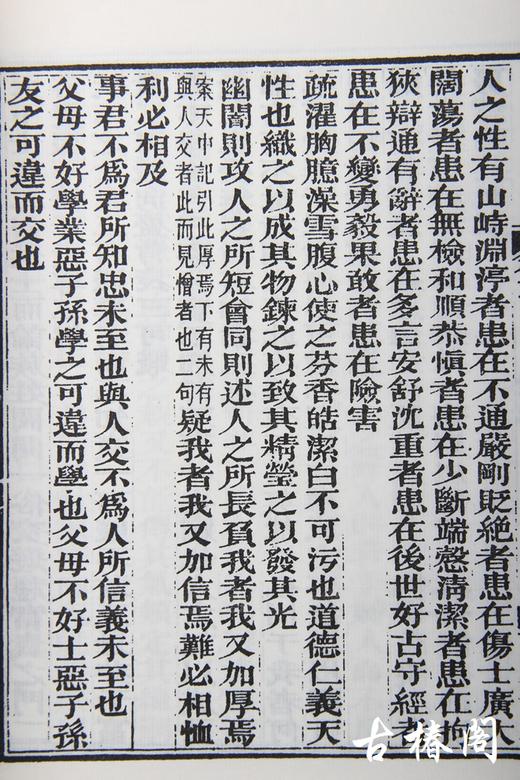 人之性有山峙淵渟者患在不通嚴剛貶絕者患在傷士廣大
闊蕩者患在無檢和順恭慎者患在少斷端愨清潔者患在拘
狹辯通有辭者患在多言安舒沈重者患在後世好古守經者
患在不變勇毅果敢者患在險害
疏濯胸臆澡雪腹心使之芬香皓潔白不可污也道德仁義天
性也織之以成其物鍊之以致其精瑩之以發其光
幽闇則攻人之所短會同則述人之所長負我者我又加厚焉
案天中記引此厚焉下有未有
與人交者此而見憎者也句疑我者我又加信焉難必相恤
利必相及
事君不為君所知忠未至也與人交不為人所信義未至也
父母不好學業惡子孫學之可違而學也父母不好士惡子孫
友之可違而交也
古椿閣